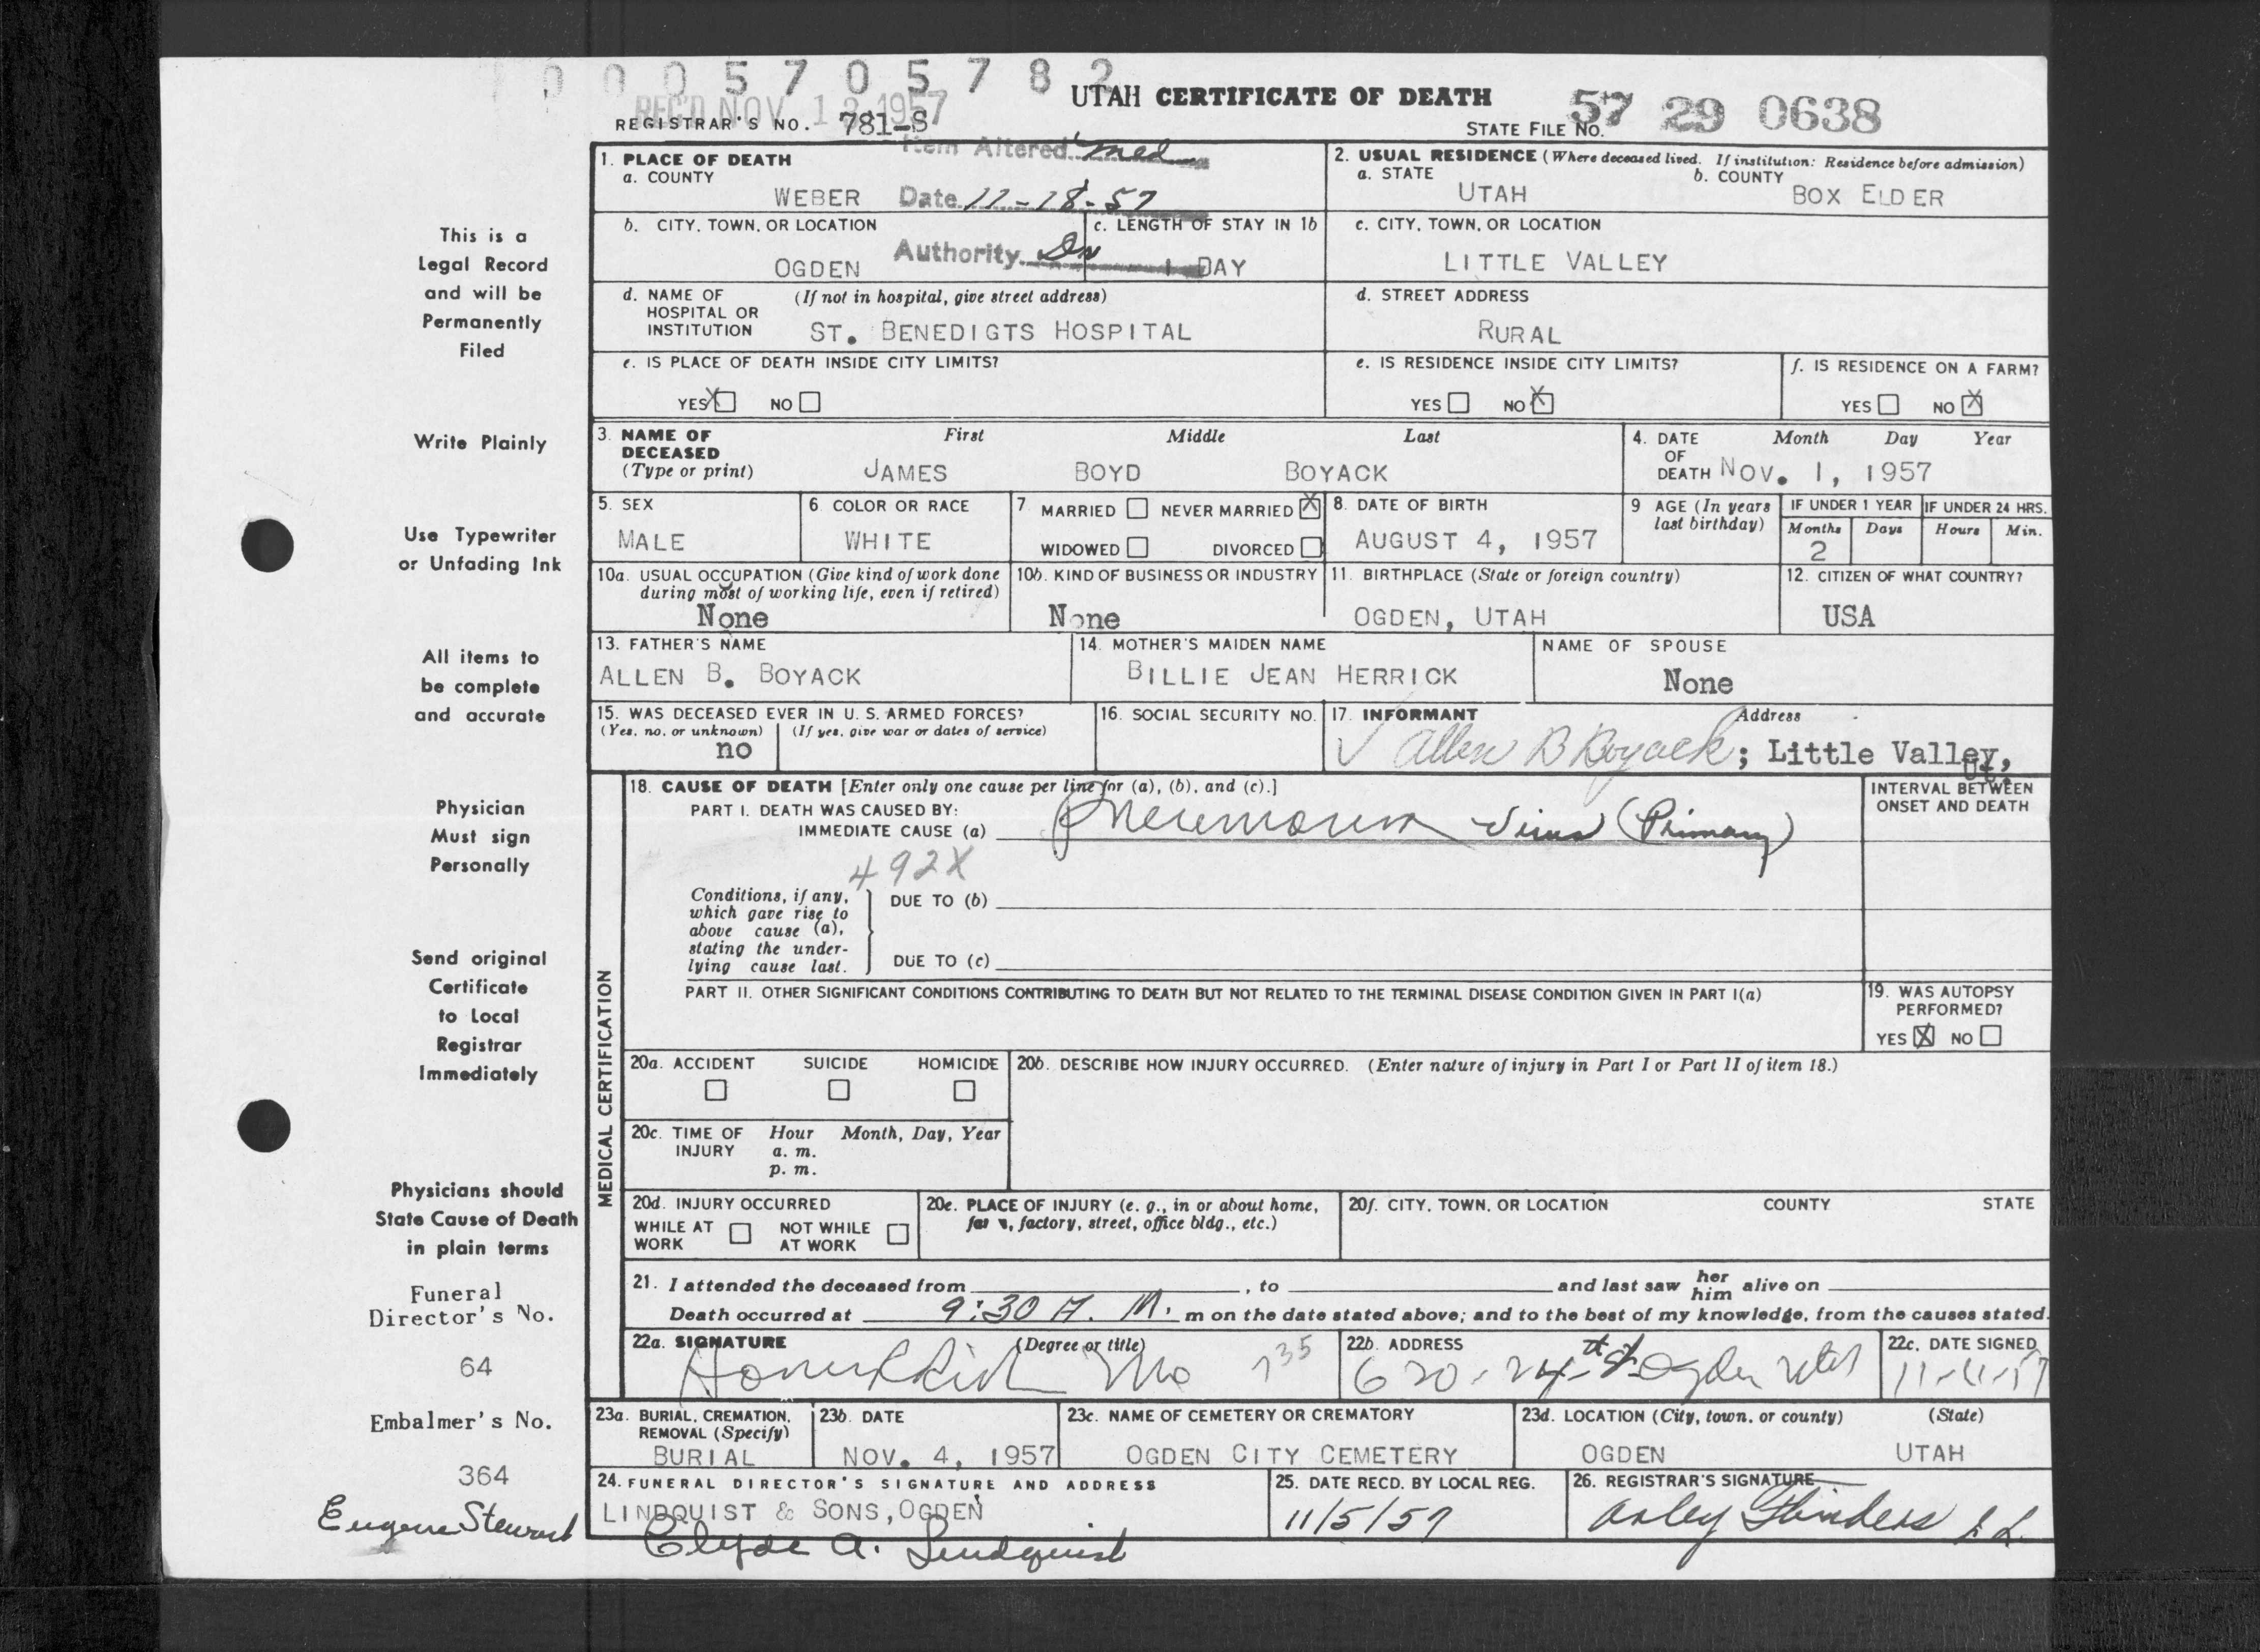 0 0 0 5 7 0 5 7 8 2
REC'D NOV 12 1957
UTAH CERTIFICATE OF DEATH
57 29 0638
REGISTRAR'S NO. 781-S
STATE FILE NO.
Item Altered med
Date 11-18-57
Authority Dr
1. PLACE OF DEATH
a. COUNTY
WEBER
2. USUAL RESIDENCE (Where deceased lived. If institution: Residence before admission)
a. STATE b. COUNTY
UTAH BOX ELDER
b. CITY, TOWN, OR LOCATION c. LENGTH OF STAY IN 1b
OGDEN 1 DAY
c. CITY, TOWN, OR LOCATION
LITTLE VALLEY
d. NAME OF HOSPITAL OR INSTITUTION (If not in hospital, give street address)
ST. BENEDIGTS HOSPITAL
d. STREET ADDRESS
RURAL
e. IS PLACE OF DEATH INSIDE CITY LIMITS?
YES X NO
e. IS RESIDENCE INSIDE CITY LIMITS?
YES NO X
f. IS RESIDENCE ON A FARM?
YES NO X
3. NAME OF DECEASED (Type or print) First Middle Last
JAMES BOYD BOYACK
4. DATE OF DEATH Month Day Year
NOV. 1, 1957
5. SEX
MALE
6. COLOR OR RACE
WHITE
7 MARRIED NEVER MARRIED X
WIDOWED DIVORCED
8. DATE OF BIRTH
AUGUST 4, 1957
9 AGE (In years last birthday)
IF UNDER 1 YEAR IF UNDER 24 HRS.
Months Days Hours Min.
2
10a. USUAL OCCUPATION (Give kind of work done during most of working life, even if retired)
None
10b. KIND OF BUSINESS OR INDUSTRY
None
11. BIRTHPLACE (State or foreign country)
OGDEN, UTAH
12. CITIZEN OF WHAT COUNTRY?
USA
13. FATHER'S NAME
ALLEN B. BOYACK
14. MOTHER'S MAIDEN NAME
BILLIE JEAN HERRICK
NAME OF SPOUSE
None
15. WAS DECEASED EVER IN U. S. ARMED FORCES?
(Yes, no, or unknown) (If yes, give war or dates of service)
no
16. SOCIAL SECURITY NO.
17. INFORMANT Address
Allen B Boyack; Little Valley, Ut.
MEDICAL CERTIFICATION
18. CAUSE OF DEATH [Enter only one cause per line for (a), (b), and (c).]
PART I. DEATH WAS CAUSED BY:
IMMEDIATE CAUSE (a) Pneumonia Virus (Primary)
492X
INTERVAL BETWEEN ONSET AND DEATH
Conditions, if any, which gave rise to above cause (a), stating the underlying cause last.
DUE TO (b)
DUE TO (c)
PART II. OTHER SIGNIFICANT CONDITIONS CONTRIBUTING TO DEATH BUT NOT RELATED TO THE TERMINAL DISEASE CONDITION GIVEN IN PART I(a)
19. WAS AUTOPSY PERFORMED?
YES X NO
20a. ACCIDENT SUICIDE HOMICIDE
20b. DESCRIBE HOW INJURY OCCURRED. (Enter nature of injury in Part I or Part II of item 18.)
20c. TIME OF INJURY Hour Month, Day, Year
a. m.
p. m.
20d. INJURY OCCURRED
WHILE AT WORK NOT WHILE AT WORK
20e. PLACE OF INJURY (e. g., in or about home, farm, factory, street, office bldg., etc.)
20f. CITY, TOWN, OR LOCATION COUNTY STATE
21. I attended the deceased from , to and last saw her him alive on
Death occurred at 9:30 A. M. m on the date stated above; and to the best of my knowledge, from the causes stated.
22a. SIGNATURE (Degree or title)
Rich MD 735
22b. ADDRESS
620-24th St Ogden Utah
22c. DATE SIGNED
11-11-57
23a. BURIAL, CREMATION, REMOVAL (Specify)
BURIAL
23b. DATE
NOV. 4, 1957
23c. NAME OF CEMETERY OR CREMATORY
OGDEN CITY CEMETERY
23d. LOCATION (City, town, or county) (State)
OGDEN UTAH
24. FUNERAL DIRECTOR'S SIGNATURE AND ADDRESS
LINDQUIST & SONS, OGDEN
Clyde A. Lindquist
25. DATE RECD. BY LOCAL REG.
11/5/57
26. REGISTRAR'S SIGNATURE
Arley Flinders
This is a
Legal Record
and will be
Permanently
Filed
Write Plainly
Use Typewriter
or Unfading Ink
All items to
be complete
and accurate
Physician
Must sign
Personally
Send original
Certificate
to Local
Registrar
Immediately
Physicians should
State Cause of Death
in plain terms
Funeral
Director's No.
64
Embalmer's No.
364
Eugene Stewart